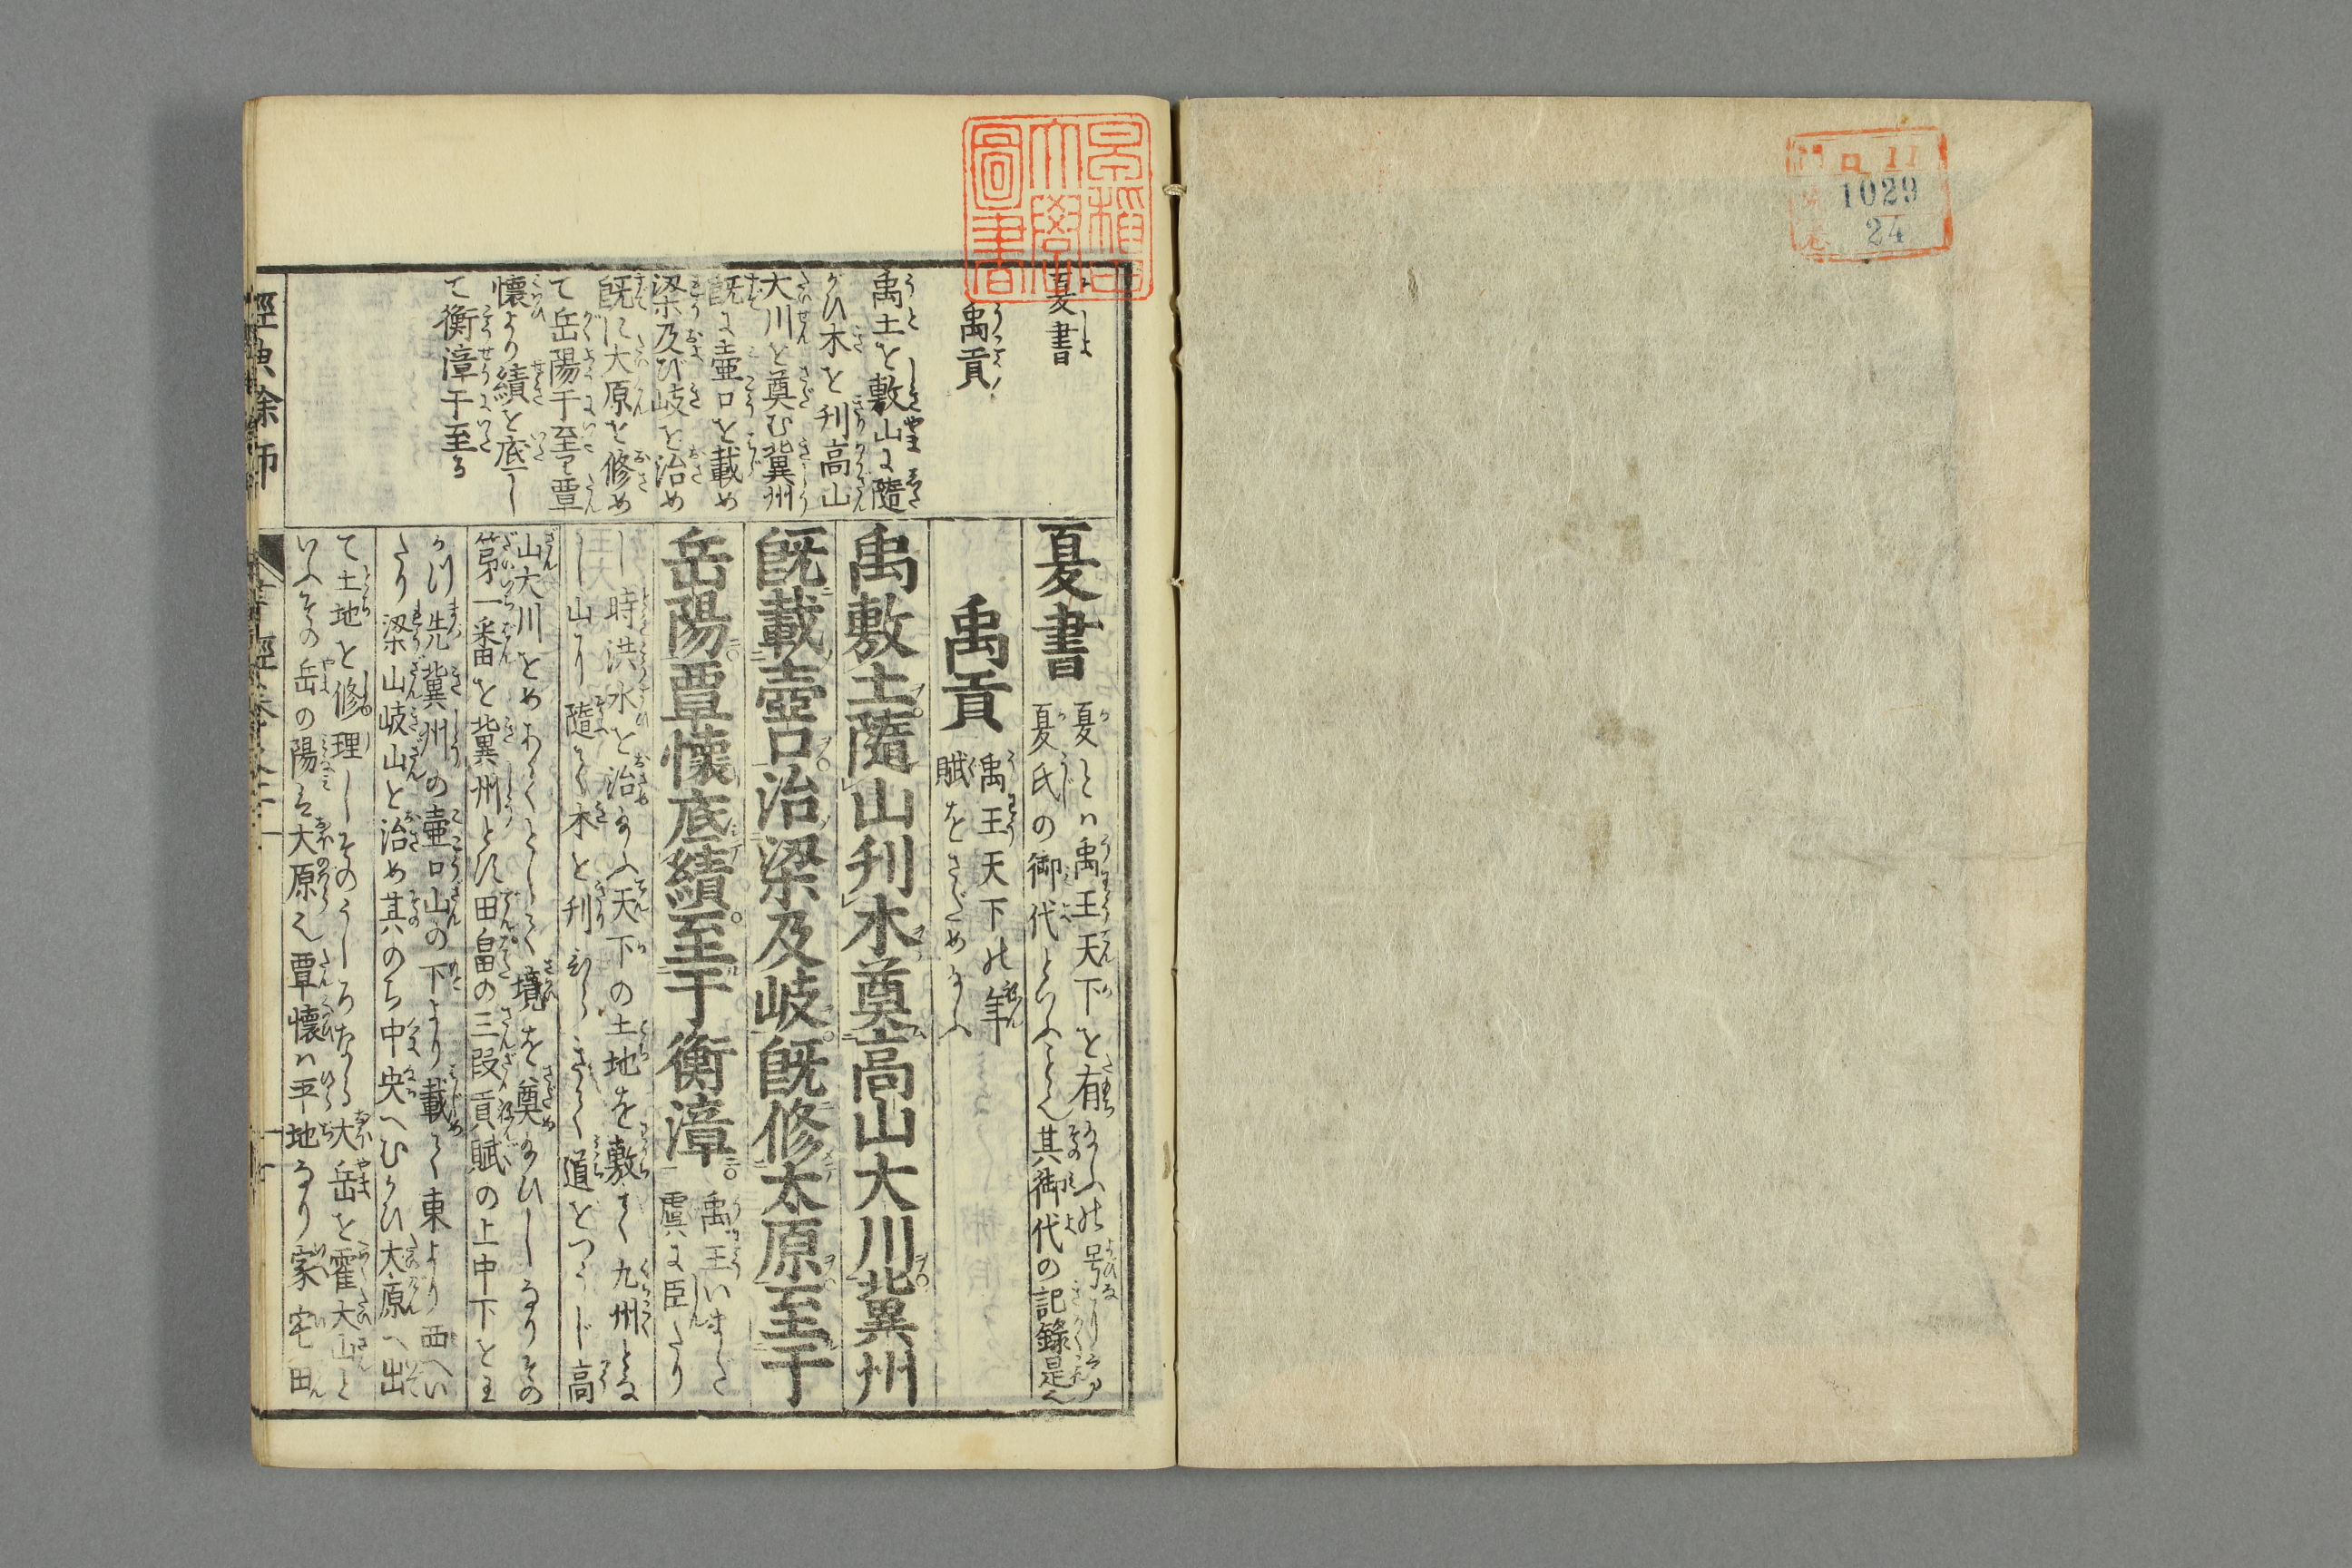 門 ロ 11
1029
24
早稲田
大學
圖書
夏書
禹貢
禹土を敷山に隨
がひ木を刋高山
大川を奠む冀州
既に壷口を載め
梁及び岐を治め
既に大原を修め
て岳陽于至り覃
懐より績を底し
て衡漳于至る
夏書
夏とは禹王天下を有
夏氏の御代といふこと也其御代の記録是也
禹貢
禹王天下の年
賦をさだめ給ふ
禹敷土隨山刋木奠高山大川冀州
既載壺口治梁及岐既修太原至于
岳陽覃懷底績至于衡漳
禹王いまだ
虞に臣たり
し時洪水を治め給ふ天下の土地を敷て九州とな
し山に隨て木を刋
道をつうじ高
山大川をめあてとして境を奠給ひしなりその
第一番を冀州とす田畠の三段貢賦の上中下を王
先冀州の壷口山の下より載て東より西へい
たり梁山岐山を治め其のち中央へむかひ大原へ出
て土地を修理しそのうしろなる大岳を霍大山と
いふその岳の陽は大原也覃懐は平地なり家宅田
經典余師
書經卷之二